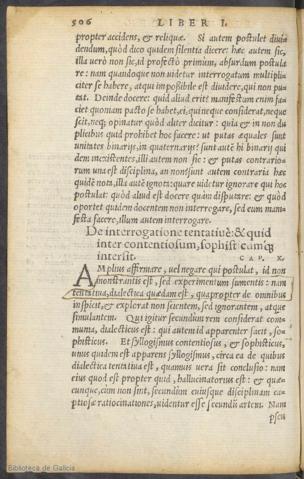 506 LIBER I.
propter accidens, & reliquæ. Si autem postulet diui
dendum, quòd dico quidem silentia dicere: hæc autem sic,
illa verò non sic, id profectò primùm, absurdum postula
re: nam quandoque non uidetur interrogatum multipli
citer se habere, atqui impoßibile est diuidere, qui non pu
tat. Deinde docere: quid aliud erit? manifestam enim fa
ciet quomodo pacto se habet ei, qui neque considerat, neque
scit, neq; opinatur quòd aliter dicitur: quia & in non du
plicibus quid prohibet hoc facere: ut putas æquales sunt
unitates binarijs, in quaternarijs? sunt autē hi binarij qui
dem inexistentes, illi autem non sic: & putas contrario-
rum una est disciplina, an non? sunt autem contraria hæc
quidē nota, illa autē ignota: quare uidetur ignorare qui hoc
postulat: quòd aliud est docere quàm disputare: & quòd
oportet quidem docentem non interrogare, sed eum mani-
festa facere, illum autem interrogare.
De interrogatione tentatiuē: & quid
inter contentiosum, sophisticamq;
intersit. CAP. X.
AMplius affirmare, uel negare qui postulat, id non
monstrantis est, sed experimentum sumentis: nam
tentatiua, dialectica quædam est, quapropter de omnibus
inspicit, & explorat non scientem, sed ignorantem, atque
simulantem. Qui igitur secundùm rem considerat com-
munia, dialecticus est: qui autem id apparenter facit, so-
phisticus. Et syllogismus contentiosus, & sophisticus,
unus quidem est apparens syllogismus, circa ea de quibus
dialectica tentatiua est, quamuis uera sit conclusio: nam
eius quod est propter quid, hallucinatorius est: & quæ-
cunque, cùm non sint, secundùm cuiusque disciplinam ca-
ptiosæ ratiocinationes, uidentur esse secundū artem. Nam
pseu
Biblioteca de Galicia